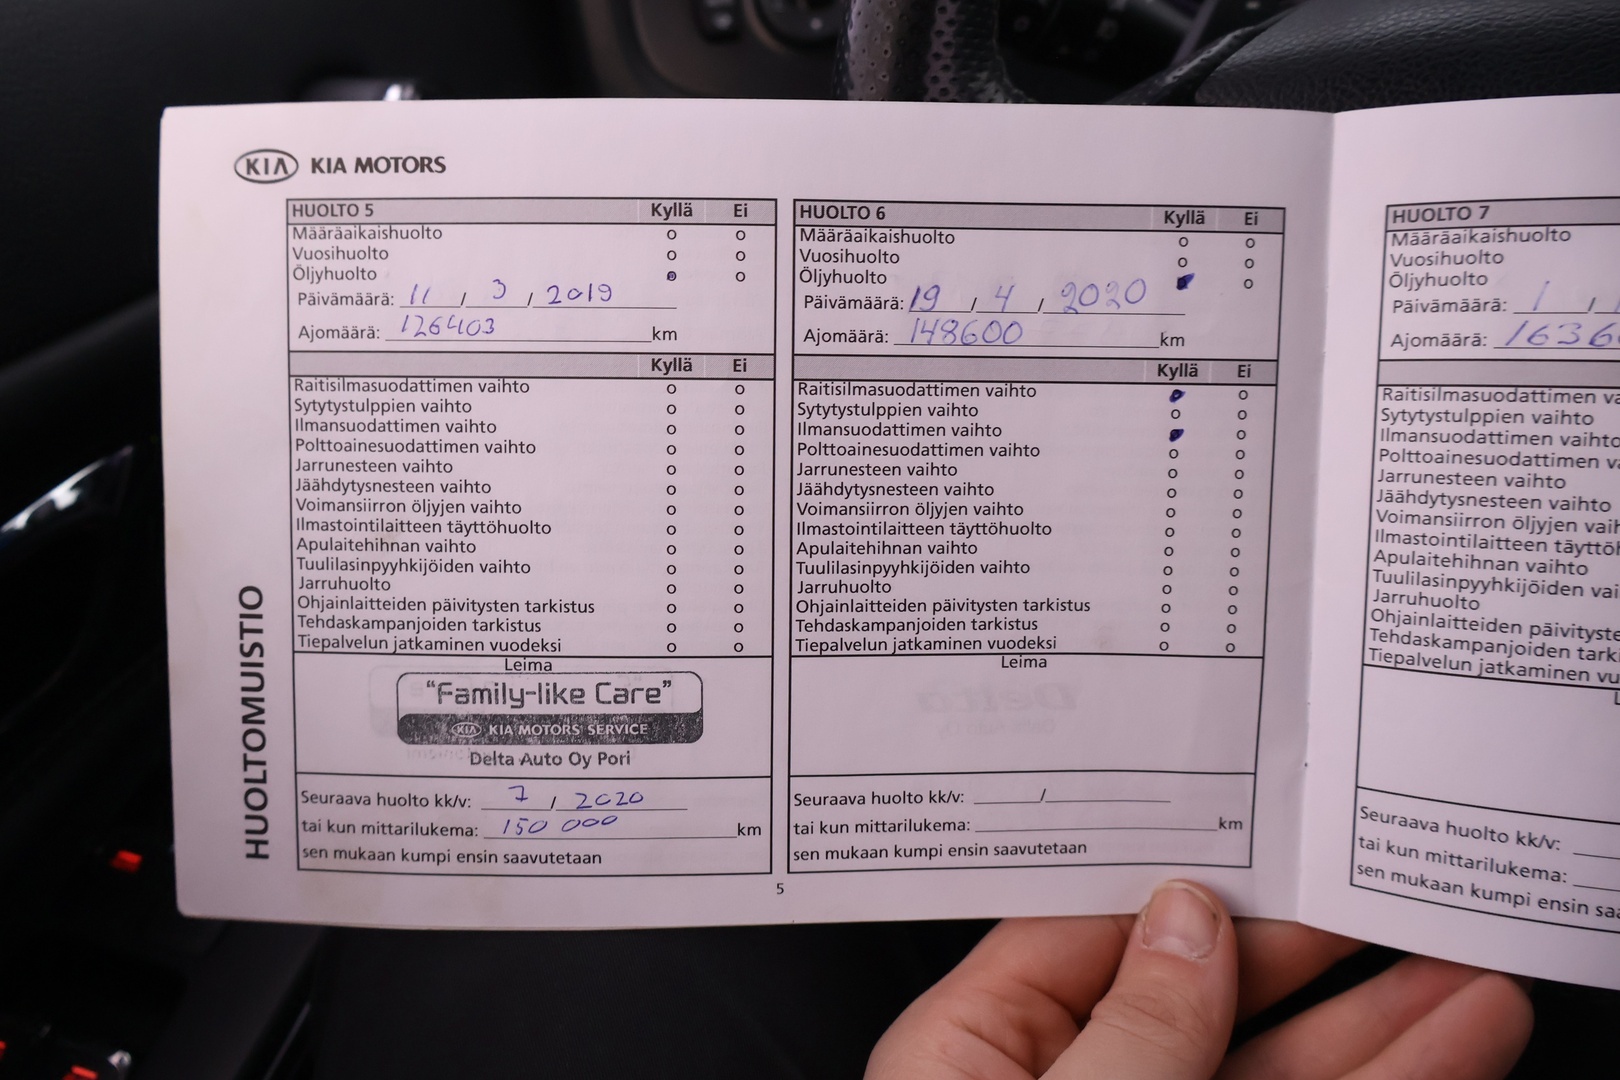 KIA KIA MOTORS
HUOLTOMUISTIO
HUOLTO 5 Kyllä Ei
Määräaikaishuolto o o
Vuosihuolto o o
Öljyhuolto o o
Päivämäärä: 11 / 3 / 2019
Ajomäärä: 126403 km
Kyllä Ei
Raitisilmasuodattimen vaihto o o
Sytytystulppien vaihto o o
Ilmansuodattimen vaihto o o
Polttoainesuodattimen vaihto o o
Jarrunesteen vaihto o o
Jäähdytysnesteen vaihto o o
Voimansiirron öljyjen vaihto o o
Ilmastointilaitteen täyttöhuolto o o
Apulaitehihnan vaihto o o
Tuulilasinpyyhkijöiden vaihto o o
Jarruhuolto o o
Ohjainlaitteiden päivitysten tarkistus o o
Tehdaskampanjoiden tarkistus o o
Tiepalvelun jatkaminen vuodeksi o o
Leima
“Family-like Care”
KIA KIA MOTORS SERVICE
Delta Auto Oy Pori
Seuraava huolto kk/v: 7 / 2020
tai kun mittarilukema: 150 000 km
sen mukaan kumpi ensin saavutetaan
HUOLTO 6 Kyllä Ei
Määräaikaishuolto o o
Vuosihuolto o o
Öljyhuolto o
Päivämäärä: 19 / 4 / 2020
Ajomäärä: 148600 km
Kyllä Ei
Raitisilmasuodattimen vaihto o
Sytytystulppien vaihto o o
Ilmansuodattimen vaihto o
Polttoainesuodattimen vaihto o o
Jarrunesteen vaihto o o
Jäähdytysnesteen vaihto o o
Voimansiirron öljyjen vaihto o o
Ilmastointilaitteen täyttöhuolto o o
Apulaitehihnan vaihto o o
Tuulilasinpyyhkijöiden vaihto o o
Jarruhuolto o o
Ohjainlaitteiden päivitysten tarkistus o o
Tehdaskampanjoiden tarkistus o o
Tiepalvelun jatkaminen vuodeksi o o
Leima
Seuraava huolto kk/v: /
tai kun mittarilukema: km
sen mukaan kumpi ensin saavutetaan
5
HUOLTO 7
Määräaikaishuolto
Vuosihuolto
Öljyhuolto
Päivämäärä: 1 /
Ajomäärä: 1636
Raitisilmasuodattimen va
Sytytystulppien vaihto
Ilmansuodattimen vaihto
Polttoainesuodattimen va
Jarrunesteen vaihto
Jäähdytysnesteen vaihto
Voimansiirron öljyjen vaih
Ilmastointilaitteen täyttöh
Apulaitehihnan vaihto
Tuulilasinpyyhkijöiden vai
Jarruhuolto
Ohjainlaitteiden päivityste
Tehdaskampanjoiden tark
Tiepalvelun jatkaminen vu
L
Seuraava huolto kk/v:
tai kun mittarilukema:
sen mukaan kumpi ensin saa